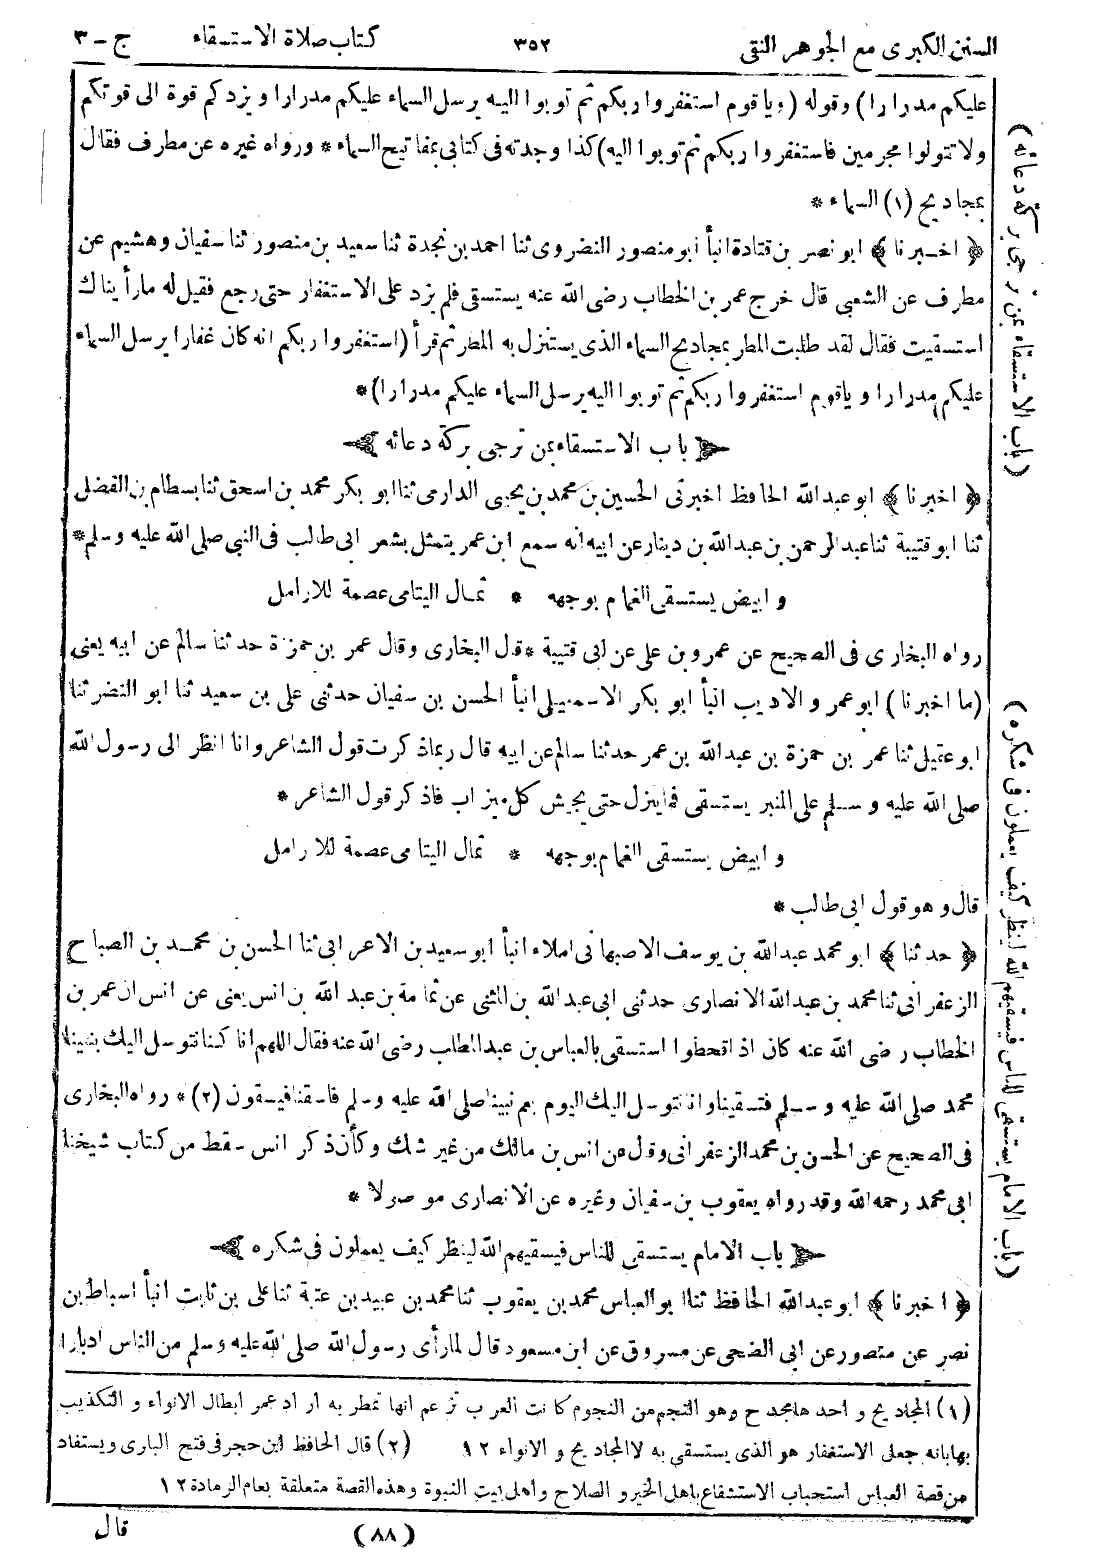 السنن الكبرى مع الجوهر النقى ٣٥٢ كتاب صلاة الاستسقاء ج - ٣
عليكم مدرارا) وقوله (وياقوم استغفروا ربكم ثم توبوا اليه يرسل السماء عليكم مدرارا ويزدكم قوة الى قوتكم
ولا تتولوا مجرمين فاستغفروا ربكم ثم توبوا اليه) كذا وجدته فى كتابى بمفاتيح السماء * ورواه غيره عن مطرف فقال
بمجاديح (١) السماء *
﴿ اخبرنا ﴾ ابو نصر بن قتادة انبأ ابو منصور النضروى ثنا احمد بن نجدة ثنا سعيد بن منصور ثنا سفيان وهشيم عن
مطرف عن الشعبى قال خرج عمر بن الخطاب رضى الله عنه يستسقى فلم يزد على الاستغفار حتى رجع فقيل له ما رأيناك
استسقيت فقال لقد طلبت المطر بمجاديح السماء الذى يستنزل به المطر ثم قرأ (استغفروا ربكم انه كان غفارا يرسل السماء
عليكم مدرارا وياقوم استغفروا ربكم ثم توبوا اليه يرسل السماء عليكم مدرارا) *
باب الاستسقاء بمن ترجى بركة دعائه
﴿ اخبرنا ﴾ ابو عبد الله الحافظ اخبرنى الحسين بن محمد بن يحيى الدارمى ثنا ابو بكر محمد بن اسحق ثنا بسطام بن الفضل
ثنا ابو قتيبة ثنا عبد الرحمن بن عبد الله بن دينار عن ابيه انه سمع ابن عمر يتمثل بشعر ابى طالب فى النبى صلى الله عليه وسلم *
وابيض يستسقى الغمام بوجهه * ثمال اليتامى عصمة للارامل
رواه البخارى فى الصحيح عن عمرو بن على عن ابى قتيبة * قال البخارى وقال عمر بن حمزة حدثنا سالم عن ابيه يعنى
(ما اخبرنا) ابو عمرو الاديب انبأ ابو بكر الاسمعيلى انبأ الحسن بن سفيان حدثنى على بن سعيد ثنا ابو النضر ثنا
ابو عقيل ثنا عمر بن حمزة بن عبد الله بن عمر حدثنا سالم عن ابيه قال ربما ذكرت قول الشاعر وانا انظر الى رسول الله
صلى الله عليه وسلم على المنبر يستسقى فما ينزل حتى يجيش كل ميزاب فاذكر قول الشاعر *
وابيض يستسقى الغمام بوجهه * ثمال اليتامى عصمة للارامل
قال وهو قول ابى طالب *
﴿ حدثنا ﴾ ابو محمد عبد الله بن يوسف الاصبهانى املاء انبأ ابو سعيد بن الاعرابى ثنا الحسن بن محمد بن الصباح
الزعفرانى ثنا محمد بن عبد الله الانصارى حدثنى ابى عبد الله بن المثنى عن ثمامة بن عبد الله بن انس يعنى عن انس ان عمر بن
الخطاب رضى الله عنه كان اذا قحطوا استسقى بالعباس بن عبد المطلب رضى الله عنه فقال اللهم انا كنا نتوسل اليك بنبينا
محمد صلى الله عليه وسلم فتسقينا وانا نتوسل اليك اليوم بعم نبينا صلى الله عليه وسلم فاسقنا فيسقون (٢) * رواه البخارى
فى الصحيح عن الحسن بن محمد الزعفرانى وقال عن انس بن مالك من غير شك وكأن ذكر انس سقط من كتاب شيخنا
ابى محمد رحمه الله وقد رواه يعقوب بن سفيان وغيره عن الانصارى موصولا *
باب الامام يستسقى للناس فيسقيهم الله لينظر كيف يعملون فى شكره
﴿ اخبرنا ﴾ ابو عبد الله الحافظ ثنا ابو العباس محمد بن يعقوب ثنا محمد بن عبيد بن عتبة ثنا على بن ثابت انبأ اسباط بن
نصر عن منصور عن ابى الضحى عن مسروق عن ابن مسعود قال لما رأى رسول الله صلى الله عليه وسلم من الناس ادبارا
(١) المجاديح واحدها مجدح وهو النجم من النجوم كانت العرب تزعم انها تمطر به اراد عمر ابطال الانواء والتكذيب
بها بانه جعل الاستغفار هو الذى يستسقى به لا المجاديح والانواء ١٢ (٢) قال الحافظ ابن حجر فى فتح البارى ويستفاد
من قصة العباس استحباب الاستشفاع باهل الخير والصلاح واهل بيت النبوة وهذه القصة متعلقة بعام الرمادة ١٢
(٨٨) قال
(باب الاستسقاء بمن ترجى بركة دعائه)
(باب الامام يستسقى للناس فيسقيهم الله لينظر كيف يعملون فى شكره)